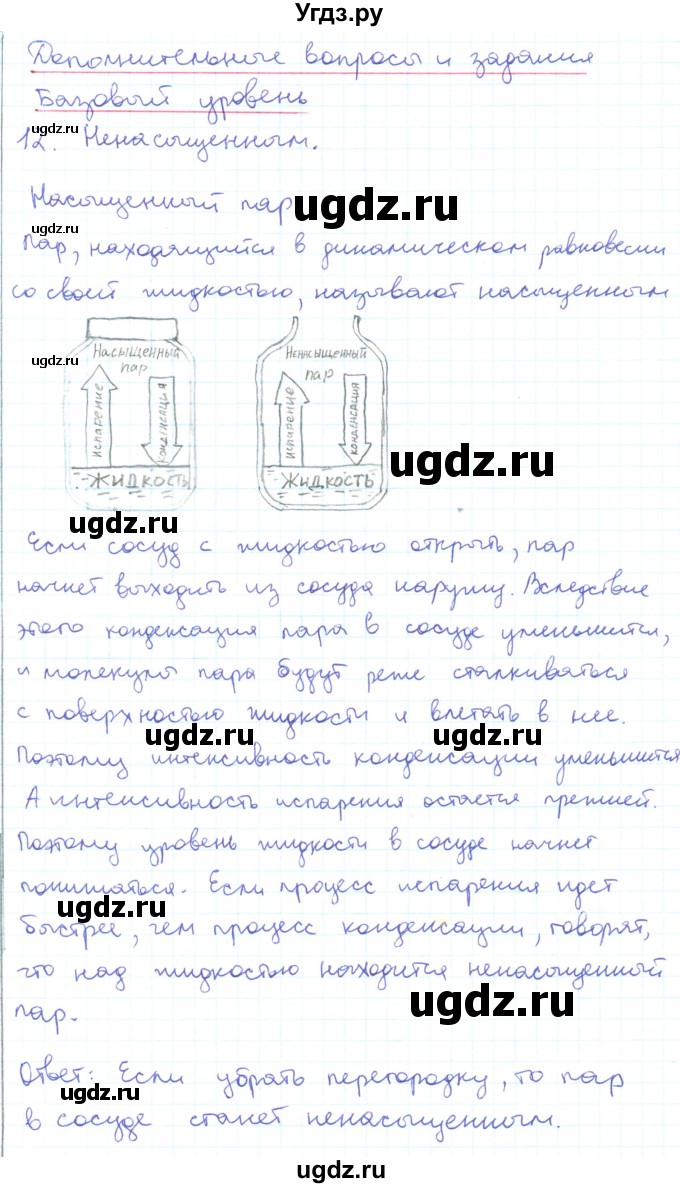 Угдз.ру
Дополнительные вопросы и задания
Базовый уровень
ugdz.ru
12. Ненасыщенным.
Насыщенный пар
ugdz.ru
ugdz.ru
Пар, находящийся в динамическом равновесии
со своей жидкостью, называют насыщенным
Насыщенный
пар
испарение
конденсация
Жидкость
Ненасыщенный
пар
испарение
конденсация
Жидкость
ugdz.ru
ugdz.ru
ugdz.ru
Если сосуд с жидкостью открыть, пар
начнет выходить из сосуда наружу. Вследствие
этого конденсация пара в сосуде уменьшится,
и молекулы пара будут реже сталкиваться
с поверхностью жидкости и влетать в нее.
ugdz.ru
ugdz.ru
Поэтому интенсивность конденсации уменьшится
А интенсивность испарения остается прежней.
Поэтому уровень жидкости в сосуде начнет
понижаться. Если процесс испарения идет
ugdz.ru
быстрее, чем процесс конденсации, говорят,
что над жидкостью находится ненасыщенный
ugdz.ru
пар.
Ответ: Если убрать перегородку, то пар
ugdz.ru
в сосуде станет ненасыщенным.
ugdz.ru